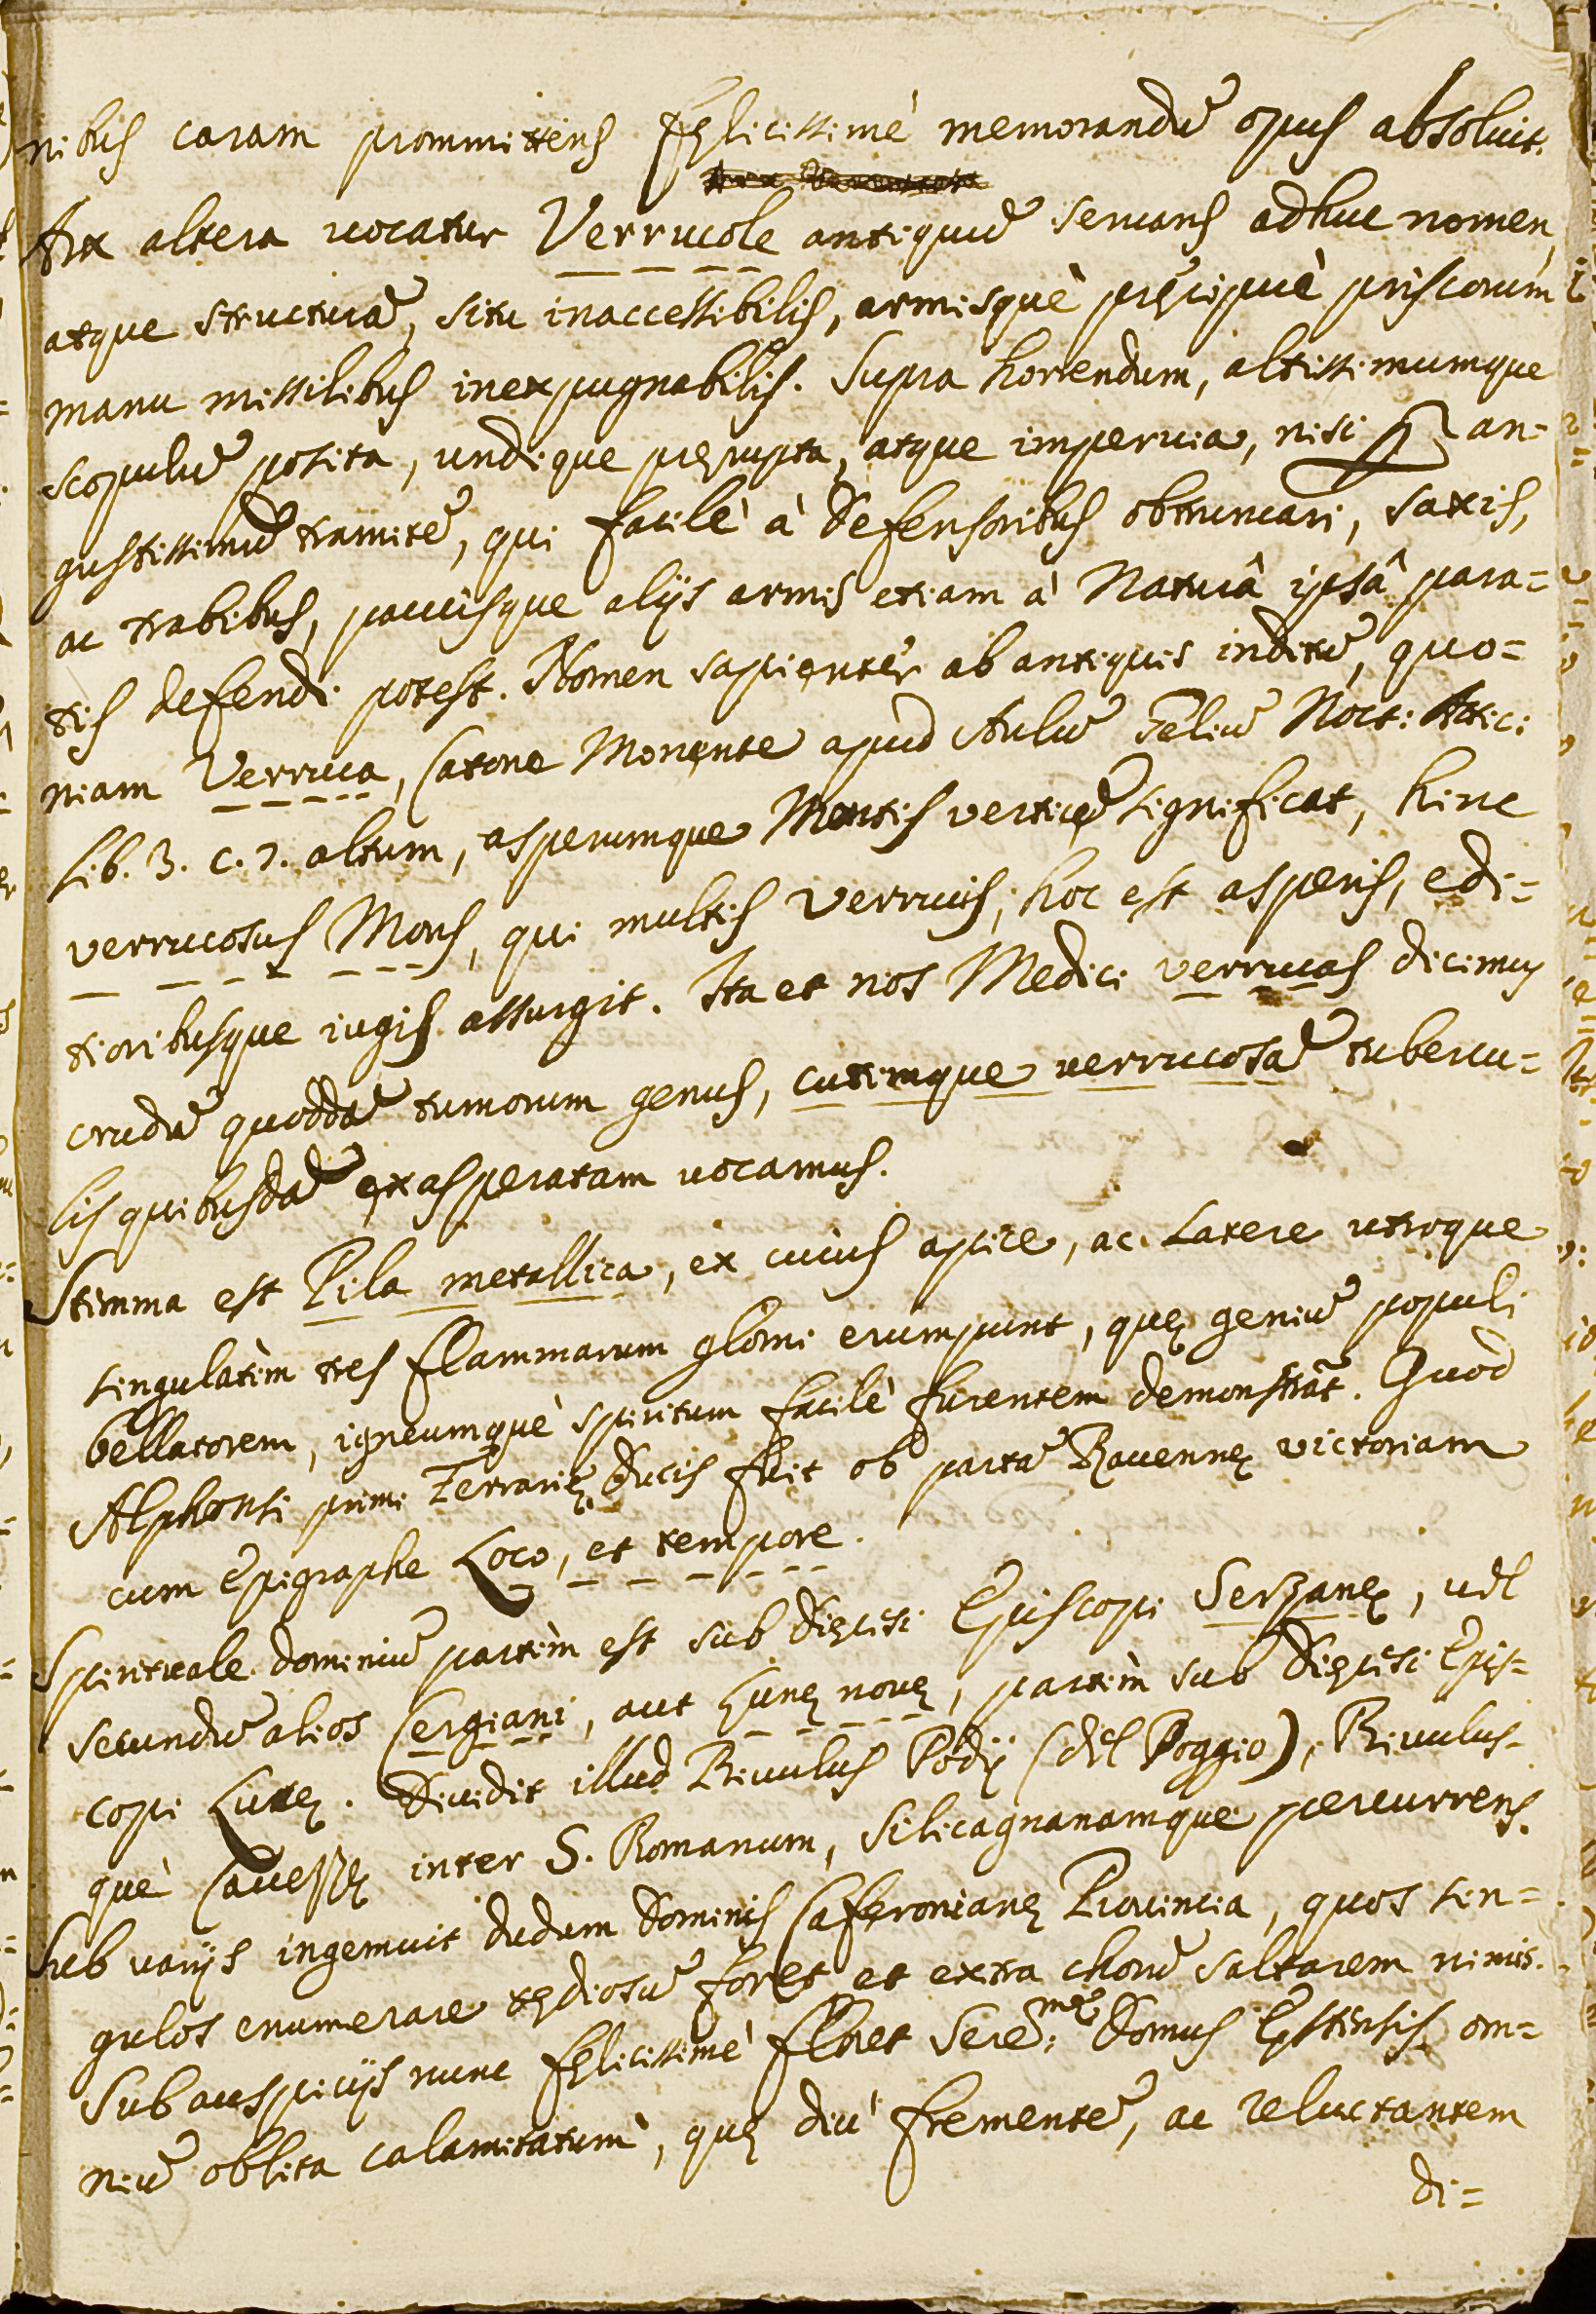 nibus caram prommittens fęlicissimè memorandũ opus absoluit.
Arx altera uocatur Verrucole antiquũ seruans adhuc nomen,
atque structurã, situ inaccessibilis, armisquè pręcipuè priscorum
manu missilibus inexpugnabilis. Supra horrendum, altissimumque
scopulũ posita, undique pręrupta, atque imperuia, nisi ꝑ an-
gustissimũ tramitẽ, qui facilè à defensoribus obtruncari, saxis,
ac trabibus, paucisque alijs armis etiam à Naturâ ipsâ para=
tis defendi potest. Nomen sapientèr ab antiquis inditũ, quo=
niam Verruca, Catone Monente apud Aulũ Geliũ Noct: Attic:
Lib. 3. c. 7. altum, asperumque Montis verticẽ significat, hinc
verrucosus Mons, qui multis verrucis, hoc est asperis, edi=
tioribusque iugis assurgit. Ita et nos Medici verrucas dicimus
crudũ quoddã tumorum genus, cutimque uerrucosã tubercu=
lis quibusdã exasperatam uocamus.
Stemma est Pila metallica, ex cuius apice, ac Latere utroque
singulatìm tres flammarum glomi erumpunt, quę geniũ populi
bellatorem, igneumquè spiritum facilè furentem demonstrãt. Quòd
Alphonsi primi Ferrarię Ducis fuit ob partã Rauennę victoriam
cum Epigraphe Loco, et tempore.
Spirituale dominiũ partìm est sub dięcesi Episcopi Serzanę, uel
secundũ alios Sergiani, aut Lunę nouę, partìm sub dięcesi Epis=
copi Lucę. Diuidit illud Riuulus Podij (del Poggio), Riuulus-
què Cauezzę inter S. Romanum, Silicagnanamque percurrens.
Sub varijs ingemuit dudum Dominis Caferonianę Prouincia, quos sin=
gulos enumerare tędiosũ foret et extra chorũ saltarem nimis.
Sub auspicijs nunc fęlicissimè floret Sere:mę Domus Estensis om=
niũ oblita calamitatum, quę diù frementẽ, ac reluctantem
di=